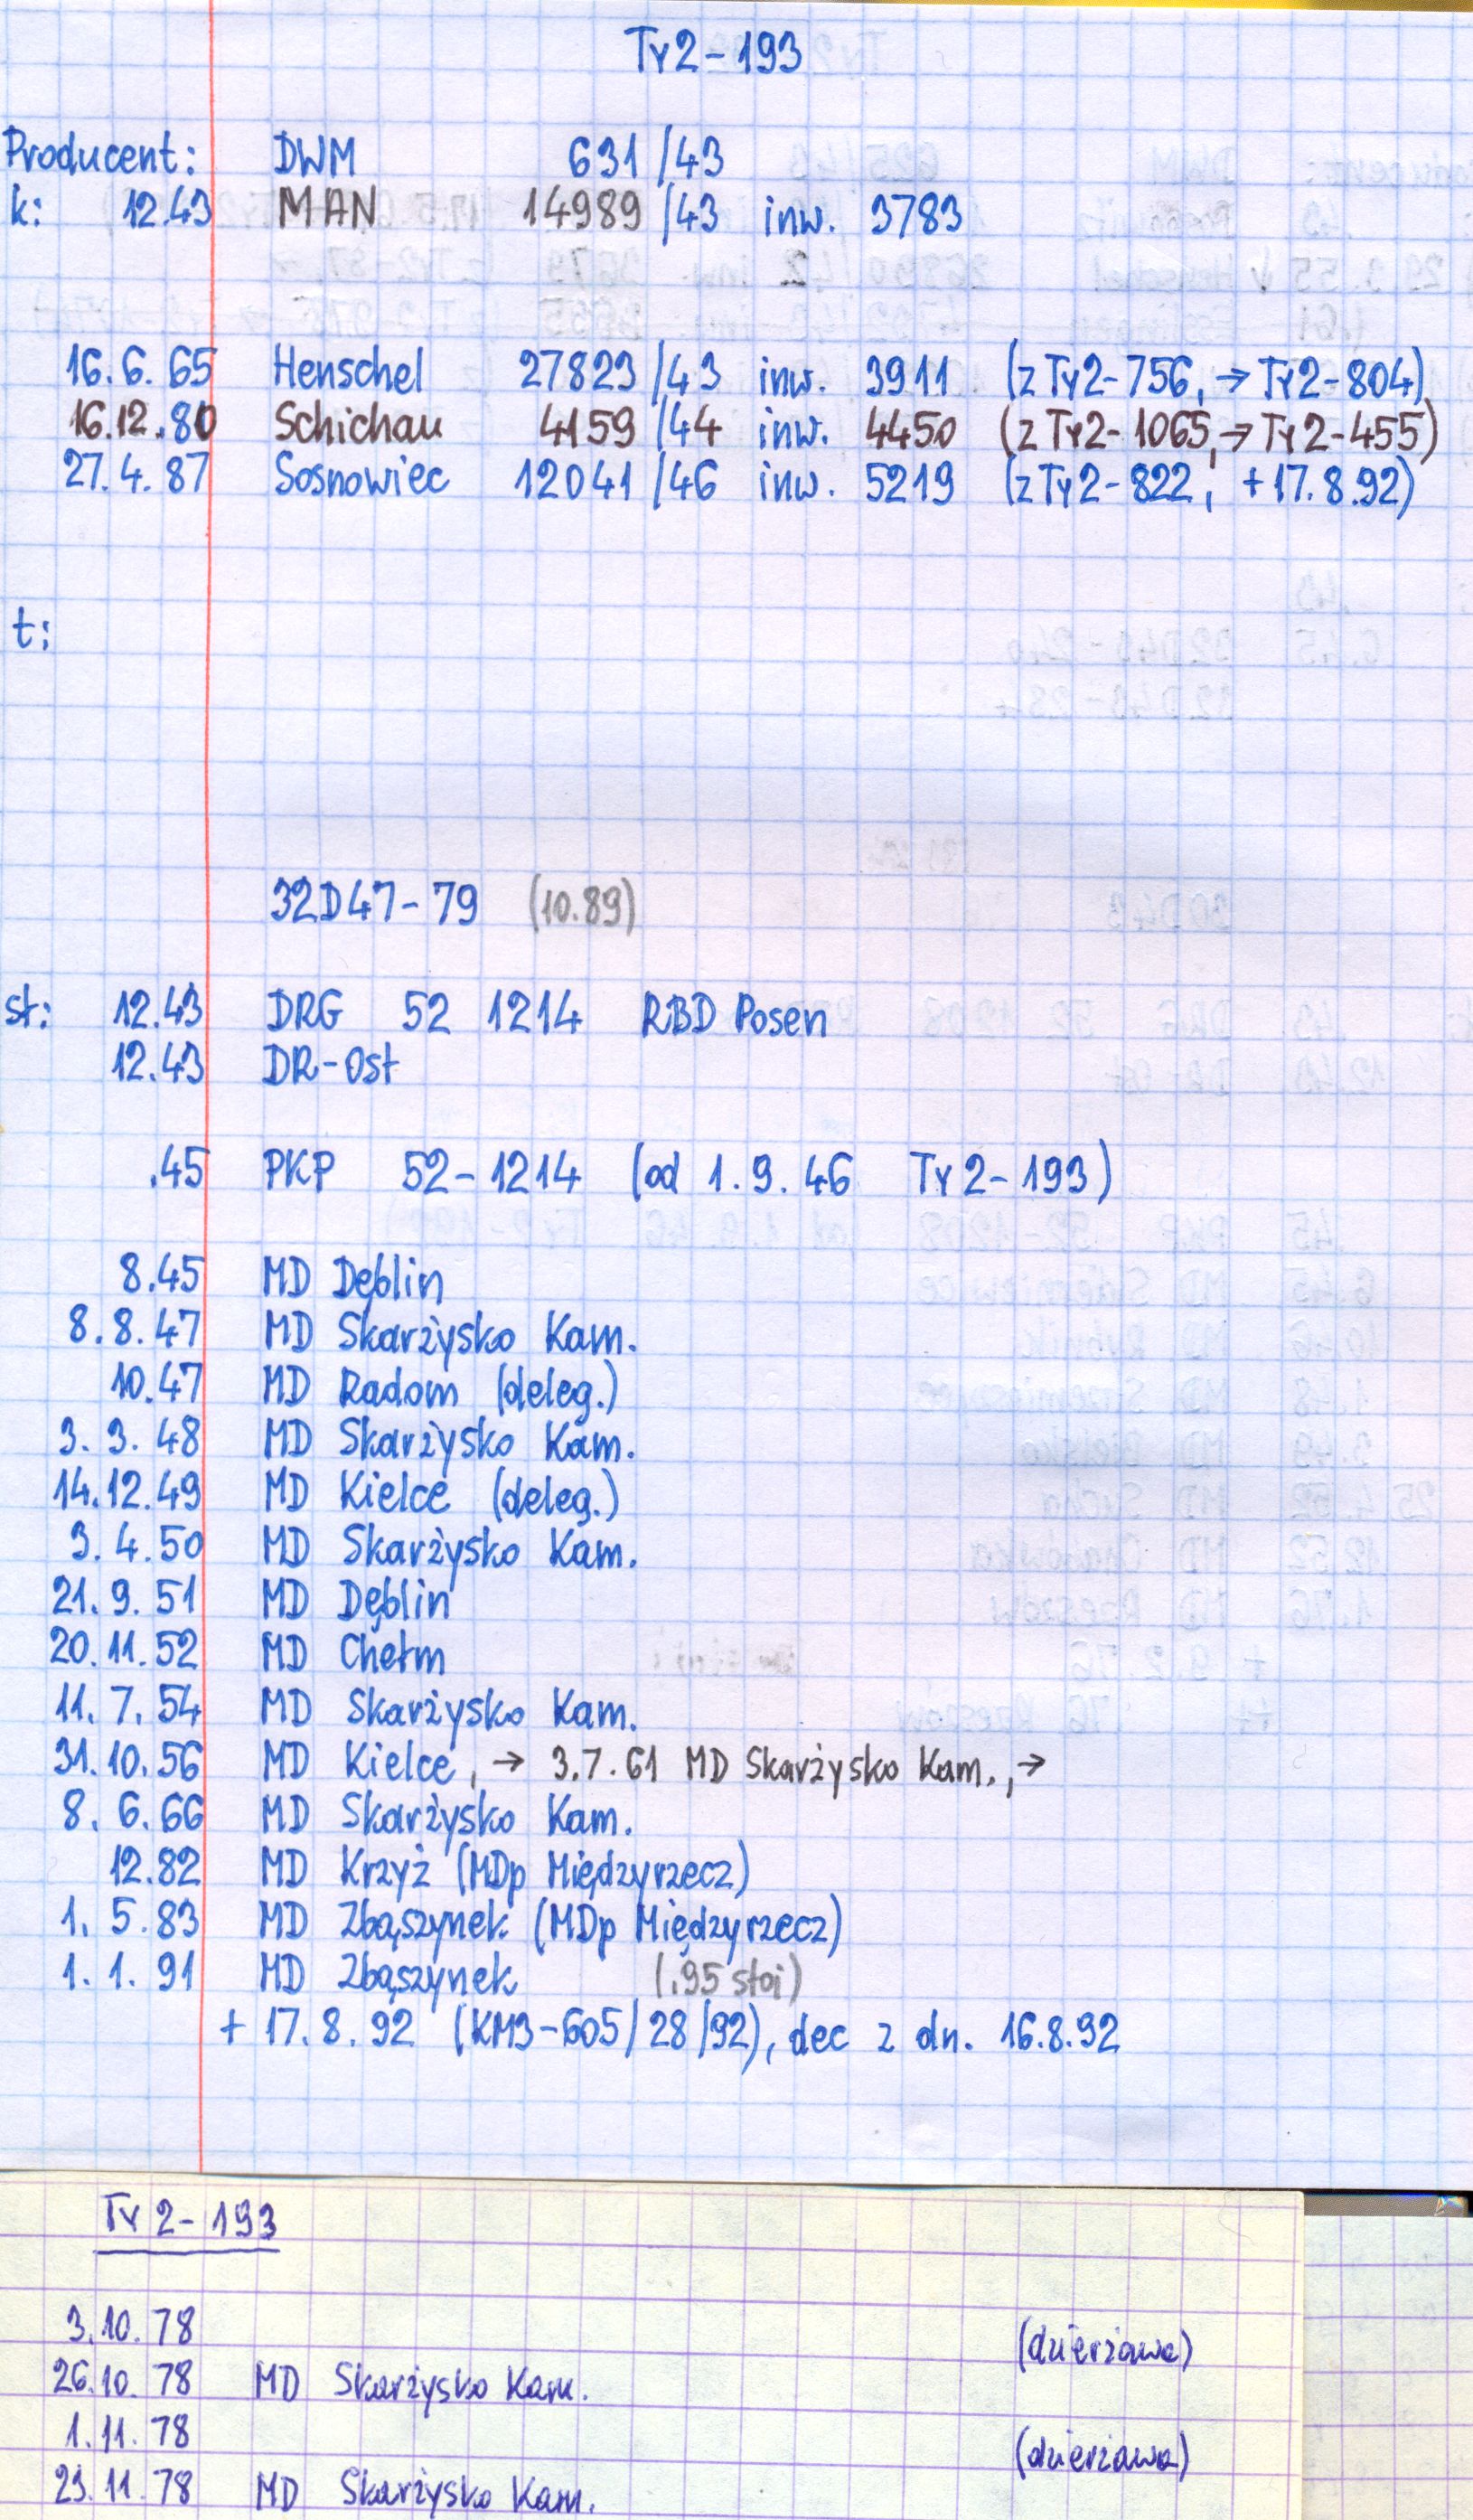 Ty2-193
Producent: DWM 631/43
k: 12.43 MAN 14989/43 inw. 3783
16.6.65 Henschel 27823/43 inw. 3911 (z Ty2-756, → Ty2-804)
16.12.80 Schichau 4159/44 inw. 4450 (z Ty2-1065, → Ty2-455)
27.4.87 Sosnowiec 12041/46 inw. 5219 (z Ty2-822, +17.8.92)
t:
32D47-79 (10.89)
st: 12.43 DRG 52 1214 RBD Posen
12.43 DR-Ost
.45 PKP 52-1214 (od 1.9.46 Ty2-193)
8.45 MD Dęblin
8.8.47 MD Skarżysko Kam.
10.47 MD Radom (deleg.)
3.3.48 MD Skarżysko Kam.
14.12.49 MD Kielce (deleg.)
3.4.50 MD Skarżysko Kam.
21.9.51 MD Dęblin
20.11.52 MD Chełm
11.7.54 MD Skarżysko Kam.
31.10.56 MD Kielce, → 3.7.61 MD Skarżysko Kam., →
8.6.66 MD Skarżysko Kam.
12.82 MD Krzyż (MDp Międzyrzecz)
1.5.83 MD Zbąszynek (MDp Międzyrzecz)
1.1.91 MD Zbąszynek (.95 stoi)
+ 17.8.92 (KM3-605/28/92), dec z dn. 16.8.92
Ty2-193
3.10.78 (dzierżawa)
26.10.78 MD Skarżysko Kam.
1.11.78 (dzierżawa)
23.11.78 MD Skarżysko Kam.